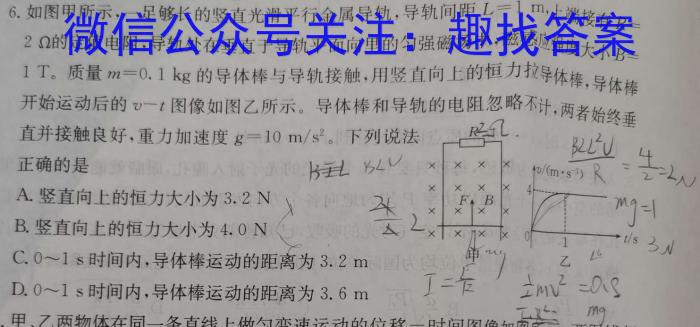 6.如图甲所示,足够长的竖直光滑平行金属导轨,导轨间距L=1 m,上端接有
微信公众号关注：趣找答案
2 Ω的定值电阻,导轨处在垂直于导轨平面向里的匀强磁场中,磁感应强度大小B=
1 T。质量m=0.1 kg的导体棒与导轨接触,用竖直向上的恒力拉导体棒,导体棒
开始运动后的v-t图像如图乙所示。导体棒和导轨的电阻忽略不计,两者始终垂
直并接触良好,重力加速度g=10 m/s²。下列说法
正确的是
A.竖直向上的恒力大小为3.2 N
B.竖直向上的恒力大小为4.0 N
C.0~1 s时间内,导体棒运动的距离为3.2 m
D.0~1 s时间内,导体棒运动的距离为3.6 m
R=2Ω
F
B
甲
v/(m·s⁻¹)
4
0
1
t/s
乙
BLV
B²L²V/R = 4/2 = 2N
mg=1
3N
2
½mv²=0.8
mg
甲、乙两物体在同一条直线上做匀变速运动的位移-时间图像如